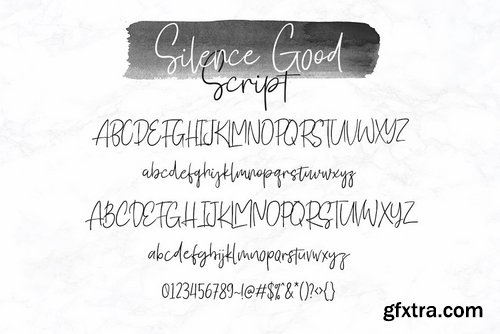 Silence Good
Script
ABCDEFGHIJKLMNOPQRSTUVWXYZ
abcdefghijklmnopqrstuvwxyz
ABCDEFGHIJKLMNOPQRSTUVWXYZ
abcdefghijklmnopqrstuvwxyz
0123456789~!@#$%^&*()?<>{}
gfxtra.com